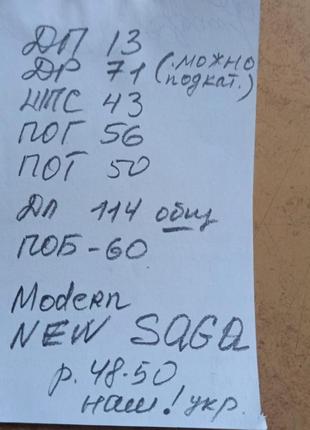 ДП 13
ДР 71 (можно подкат.)
ШПС 43
ПОГ 56
ПОТ 50
Дл 114 общ
ПОБ-60
Modern
NEW SAGA
р. 48-50
наш! укр.